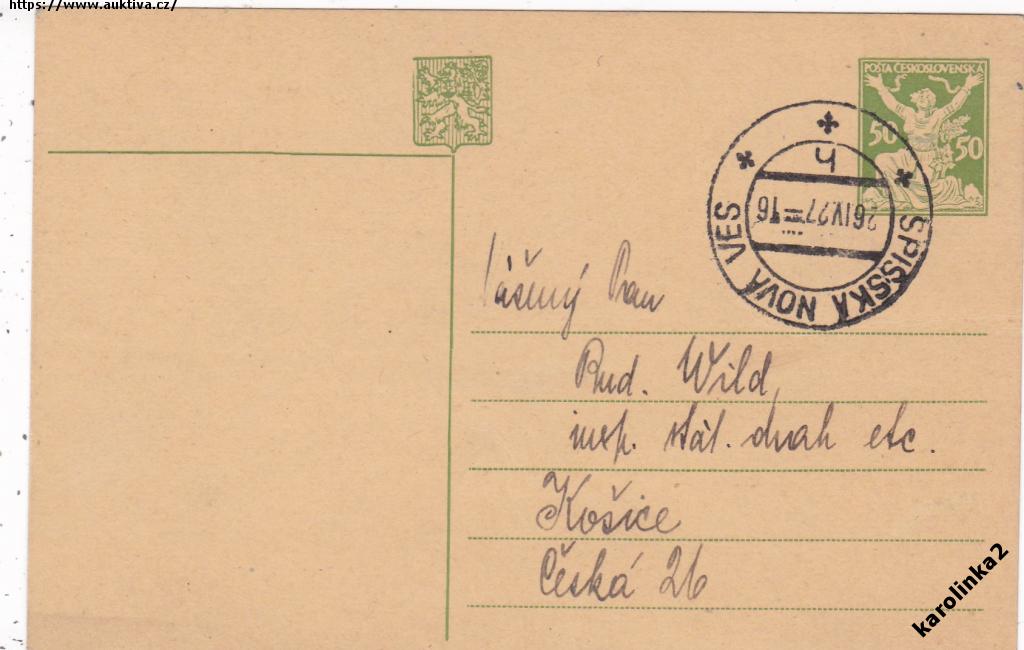 https://www.auktiva.cz/
POŠTA ČESKOSLOVENSKÁ
50 50
SPIŠSKÁ NOVÁ VES
26.IV.27-16
Vášený Pan
Rud. Wild,
insp. stát. drah etc.
Košice
Česká 26
karolinka2